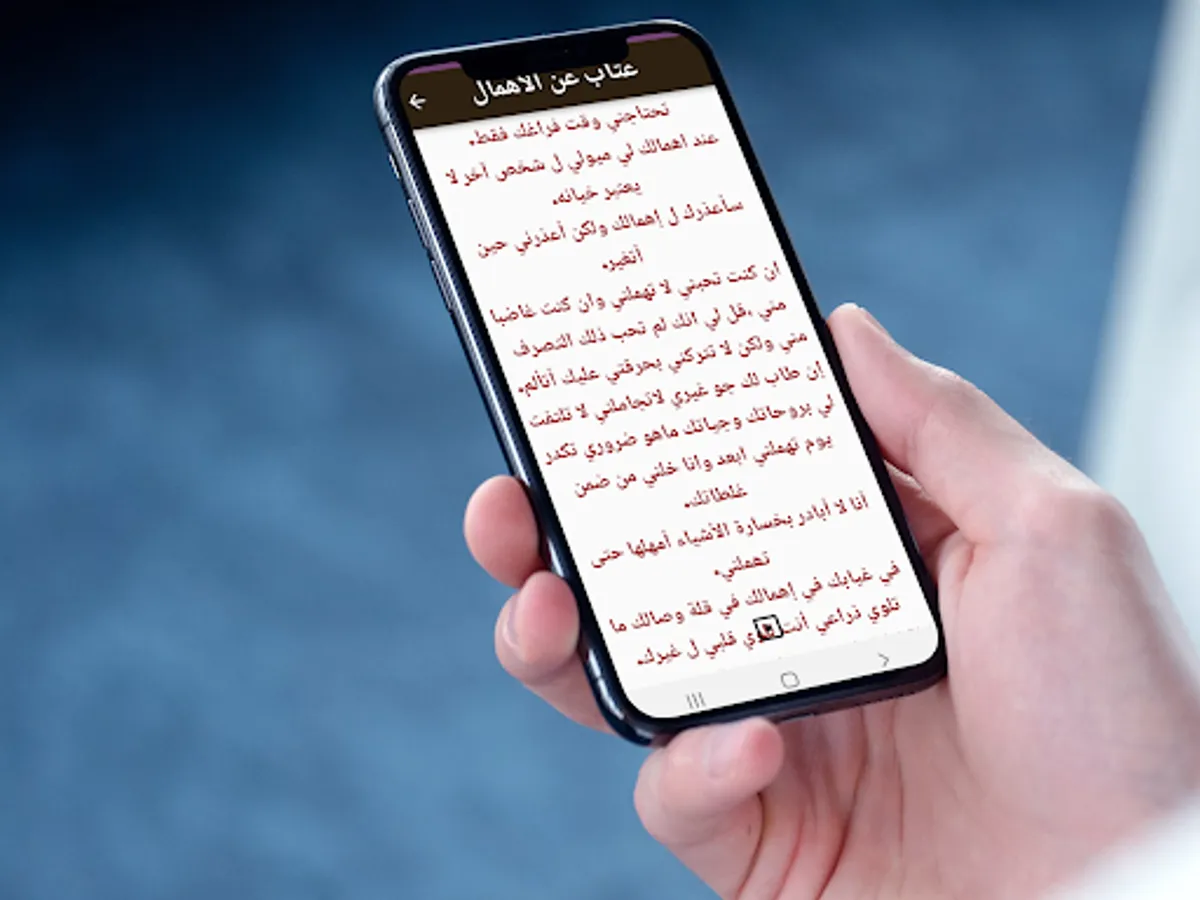 عتاب عن الاهمال
تحتاجني وقت فراغك فقط.
عند اهمالك لي ميولي ل شخص آخر لا
يعتبر خيانه.
سأعذرك ل إهمالك ولكن أعذرني حين
أتغير.
ان كنت تحبني لا تهملني وان كنت غاضبا
مني ،قل لي انك لم تحب ذلك التصرف
مني ولكن لا تتركني بحرقتي عليك أتألم.
إن طاب لك جو غيري لاتجاملني لا تلتفت
لي بروحاتك وجياتك ماهو ضروري تكدر
يوم تهملني ابعد وانا خلني من ضمن
غلطاتك.
أنا لا أبادر بخسارة الأشياء أمهلها حتى
تهملني.
في غيابك في إهمالك في قلة وصالك ما
تلوي ذراعي أنت قلبي ل غيرك.